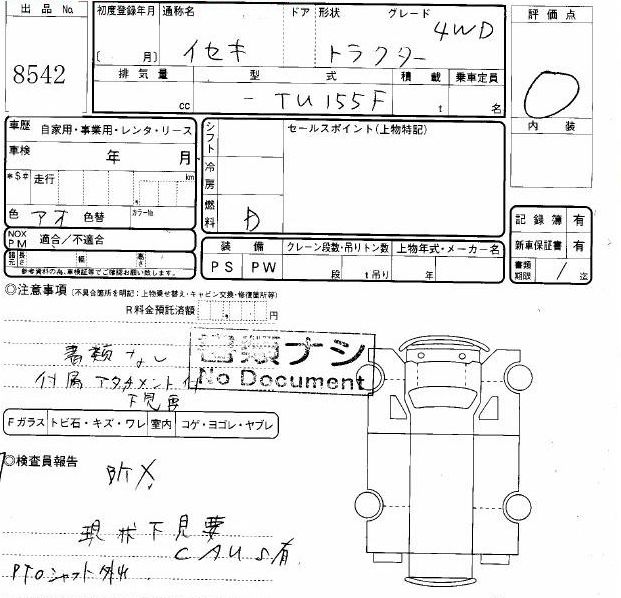 出品 No.
8542
初度登録年月
[ 月]
通称名
イセキ
ドア 形状
トラクター
グレード
4WD
排気量
cc
型式
- TU155F
積載
t
乗車定員
名
評価点
内装
車歴 自家用・事業用・レンタ・リース
車検 年 月
走行
km
色 アオ 色替
カラーNo.
NOX PM 適合/不適合
諸元 長さ 幅 高さ
参考資料の為、車検証等でご確認お願い致します。
シフト
冷房
燃料 D
セールスポイント(上物特記)
装備
PS PW
クレーン段数・吊りトン数
段 t吊り
上物年式・メーカー名
年
記録簿 有
新車保証書 有
書類期限 / 迄
◎注意事項 (不具合箇所を明記:上物乗せ替え・キャビン交換・修復箇所等)
R料金預託済額 円
書類なし
書類ナシ
No Document
付属アタチメント付
下見要
Fガラス トビ石・キズ・ワレ 室内 コゲ・ヨゴレ・ヤブレ
◎検査員報告
現状下見要
CAUS有
PTOシャフト